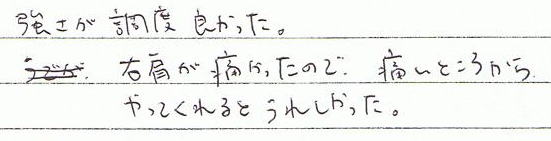 強さが調度良かった。
右肩が痛かったので、痛いところから
やってくれるとうれしかった。